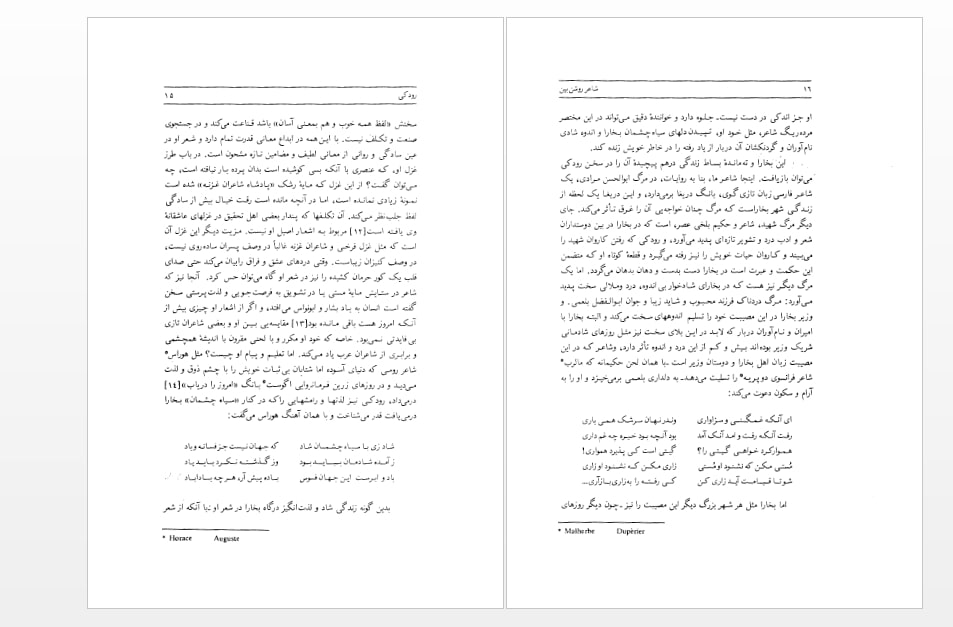 رودکی
۱۵
سخنش «لفظ همه خوب و هم بمعنی آسان» باشد قناعت می‌کند و در جستجوی
صنعت و تکلف نیست. با این‌همه در ابداع معانی قدرت تمام دارد و شعر او در
عین سادگی و روانی از معانی لطیف و مضامین تازه مشحون است. در باب طرز
غزل او، که عنصری با آنکه بسی کوشیده است بدان پرده بار نیافته است، چه
می‌توان گفت؟ از این غزل که مایهٔ رشک «پادشاه شاعران غزنه» شده است
نمونهٔ زیادی نمانده است، اما در آنچه مانده است رقت خیال بیش از سادگی
لفظ جلب‌نظر می‌کند. آن تکلفها که پندار بعضی اهل تحقیق در غزلهای عاشقانهٔ
وی یافته است[۱۲] مربوط به اشعار اصیل او نیست. مزیت دیگر این غزل آن
است که مثل غزل فرخی و شاعران غزنه غالباً در وصف پسران ساده‌روی نیست،
در وصف کنیزان زیباست. وقتی دردهای عشق و فراق رابیان می‌کند حتی صدای
قلب یک کور حرمان کشیده را نیز در شعر او گاه می‌توان حس کرد. آنجا نیز که
شاعر در ستایش مایهٔ مستی یا در تشویق به فرصت‌جویی و لذت‌پرستی سخن
گفته است انسان به یاد بشار و ابونواس می‌افتد، و اگر از اشعار او چیزی بیش از
آنکه امروز هست باقی مانده بود[۱۳] مقایسه‌یی بین او و بعضی شاعران تازی
بی‌فایدتی نمی‌بود. خاصه که خود او مکرر و با لحنی مقرون با اندیشهٔ همچشمی
و برابری از شاعران عرب یاد می‌کند. اما تعلیم و پیام او چیست؟ مثل هوراس*
شاعر رومی که دنیای آسوده اما شتابان بی‌ثبات خویش را با چشم ذوق و لذت
می‌دید و در روزهای زرین فرمانروایی اگوست* بانگ «امروز را دریاب»[۱۴]
درمی‌داد، رودکی نیز لذتها و رامشهایی راکه در کنار «سیاه چشمان» بخارا
درمی‌یافت قدر می‌شناخت و با همان آهنگ هوراس می‌گفت:
شاد زی با سیاه چشمان شاد که جهان نیست جز فسانه و باد
ز آمده شادمان ببایید بود وز گذشته نکرد باید یاد
باد و ابرست این جهان فسوس باده پیش آر، هر چه بادا باد
بدین گونه زندگی شاد و لذت‌انگیز درگاه بخارا در شعر او با آنکه از شعر
* Horace Auguste
۱۶
شاعر روشن‌بین
او جز اندکی در دست نیست‌ـ جلوه دارد و خوانندهٔ دقیق می‌تواند در این مختصر
مرده‌ریگ شاعر، مثل خود او، تپیدن دلهای سیاه‌چشمان بخارا و اندوه شادی
نام‌آوران و گردنکشان آن دربار از یاد رفته را در خاطر خویش زنده کند.
این بخارا و ته‌ماندهٔ بساط زندگی درهم پیچیدهٔ آن را در سخن رودکی
می‌توان بازیافت. اینجا شاعر ما، بنا به روایات، در مرگ ابوالحسن مرادی، یک
شاعر فارسی زبان تازی‌گوی، بانگ دریغا برمی‌دارد، و این دریغا یک لحظه از
زندگی شهر بخاراست که مرگ چنان خواجه‌یی آن را غرق تأثر می‌کند. جای
دیگر مرگ شهید، شاعر و حکیم بلخی عصر، است که در بخارا در بین دوستداران
شعر و ادب درد و تشویر تازه‌ای پدید می‌آورد، و رودکی که رفتن کاروان شهید را
می‌بیند و کاروان حیات خویش را نیز رفته می‌گیرد و قطعهٔ کوتاه او که متضمن
این حکمت و عبرت است در بخارا دست بدست و دهان بدهان می‌گردد. اما یک
مرگ دیگر نیز هست که در بخارای شادخوار بی اندوه، درد و ملالی سخت پدید
می‌آورد: مرگ دردناک فرزند محبوب و شاید زیبا و جوان ابوالفضل بلعمی. و
وزیر بخارا در این مصیبت خود را تسلیم اندوههای سخت می‌کند و البته بخارا با
امیران و نام‌آوران دربار که لابد در این بلای سخت نیز مثل روزهای شادمانی
شریک وزیر بوده‌اند بیش و کم از این درد و اندوه تأثر دارد، وشاعر که در این
مصیبت زبان اهل بخارا و دوستان وزیر است ـبا همان لحن حکیمانه که مالرب*
شاعر فرانسوی دوپریه* را تسلیت می‌دهدـ به دلداری بلعمی برمی‌خیزد و او را به
آرام و سکون دعوت می‌کند:
ای آنکه غمگنی و سزاواری وندر نهان سرشک همی باری
رفت آنکه رفت و آمد آنک آمد بود آنچه بود خیره چه غم داری
هموار کرد خواهی گیتی را؟ گیتی است کی پذیرد همواری!
مُستی مکن که نشنود او مُستی زاری مکن که نشنود او زاری
شو تا قیامت آید زاری کن کی رفته را به زاری باز آری...
اما بخارا مثل هر شهر بزرگ دیگر این مصیبت را نیز ـچون دیگر روزهای
* Malherbe Dupérier